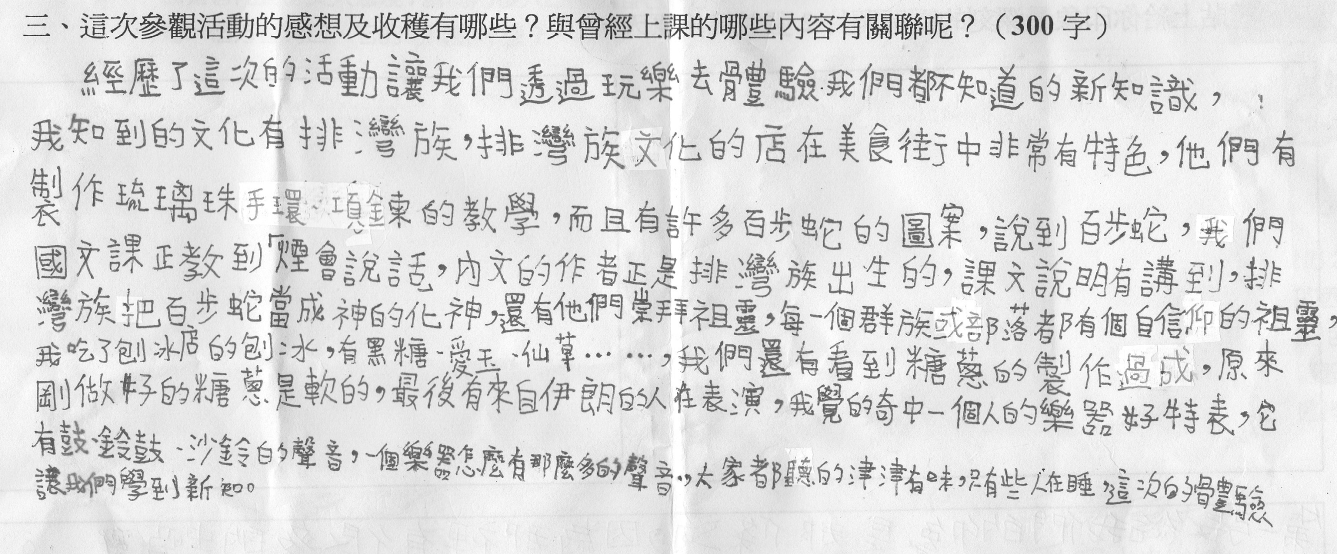 三、這次參觀活動的感想及收穫有哪些？與曾經上課的哪些內容有關聯呢？（300 字）
經歷了這次的活動讓我們透過玩樂去體驗我們都不知道的新知識，
我知到的文化有排灣族，排灣族文化的店在美食街中非常有特色，他們有
製作琉璃珠手環、項鍊的教學，而且有許多百步蛇的圖案，說到百步蛇，我們
國文課正教到「煙會說話，內文的作者正是排灣族出生的，課文說明有講到，排
灣族把百步蛇當成神的化神，還有他們崇拜祖靈，每一個群族或部落者都有個自信仰的祖靈，
我吃了刨冰店的刨冰，有黑糖、愛玉、仙草……，我們還有看到糖蔥的製作過成，原來
剛做好的糖蔥是軟的，最後有來自伊朗的人在表演，我覺的奇中一個人的樂器好特表，它
有鼓、鈴鼓、沙鈴的聲音，一個樂器怎麼有那麼多的聲音，大家都聽的津津有味，只有些人在睡，這次的體驗
讓我們學到新知。